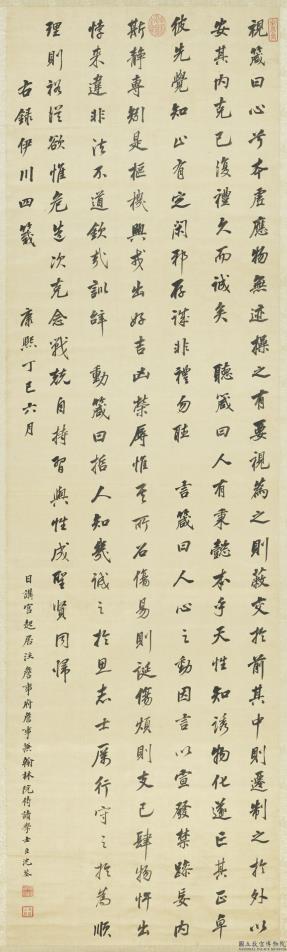 視箴曰心兮本虛應物無迹操之有要視為之則蔽交於前其中則遷制之於外以
安其內克己復禮久而誠矣 聽箴曰人有秉懿本乎天性知誘物化遂亡其正卓
彼先覺知止有定閑邪存誠非禮勿聽 言箴曰人心之動因言以宣發禁躁妄內
斯靜專矧是樞機興戎出好吉凶榮辱惟其所召傷易則誕傷煩則支己肆物忤出
悖來違非法不道欽哉訓辭 動箴曰哲人知幾誠之於思志士厲行守之於為順
理則裕從欲惟危造次克念戰兢自持習與性成聖賢同歸
右錄伊川四箴 康熙丁巳六月
日講官起居注詹事府詹事兼翰林院侍讀學士臣沈荃
國立故宮博物院
NATIONAL PALACE MUSEUM